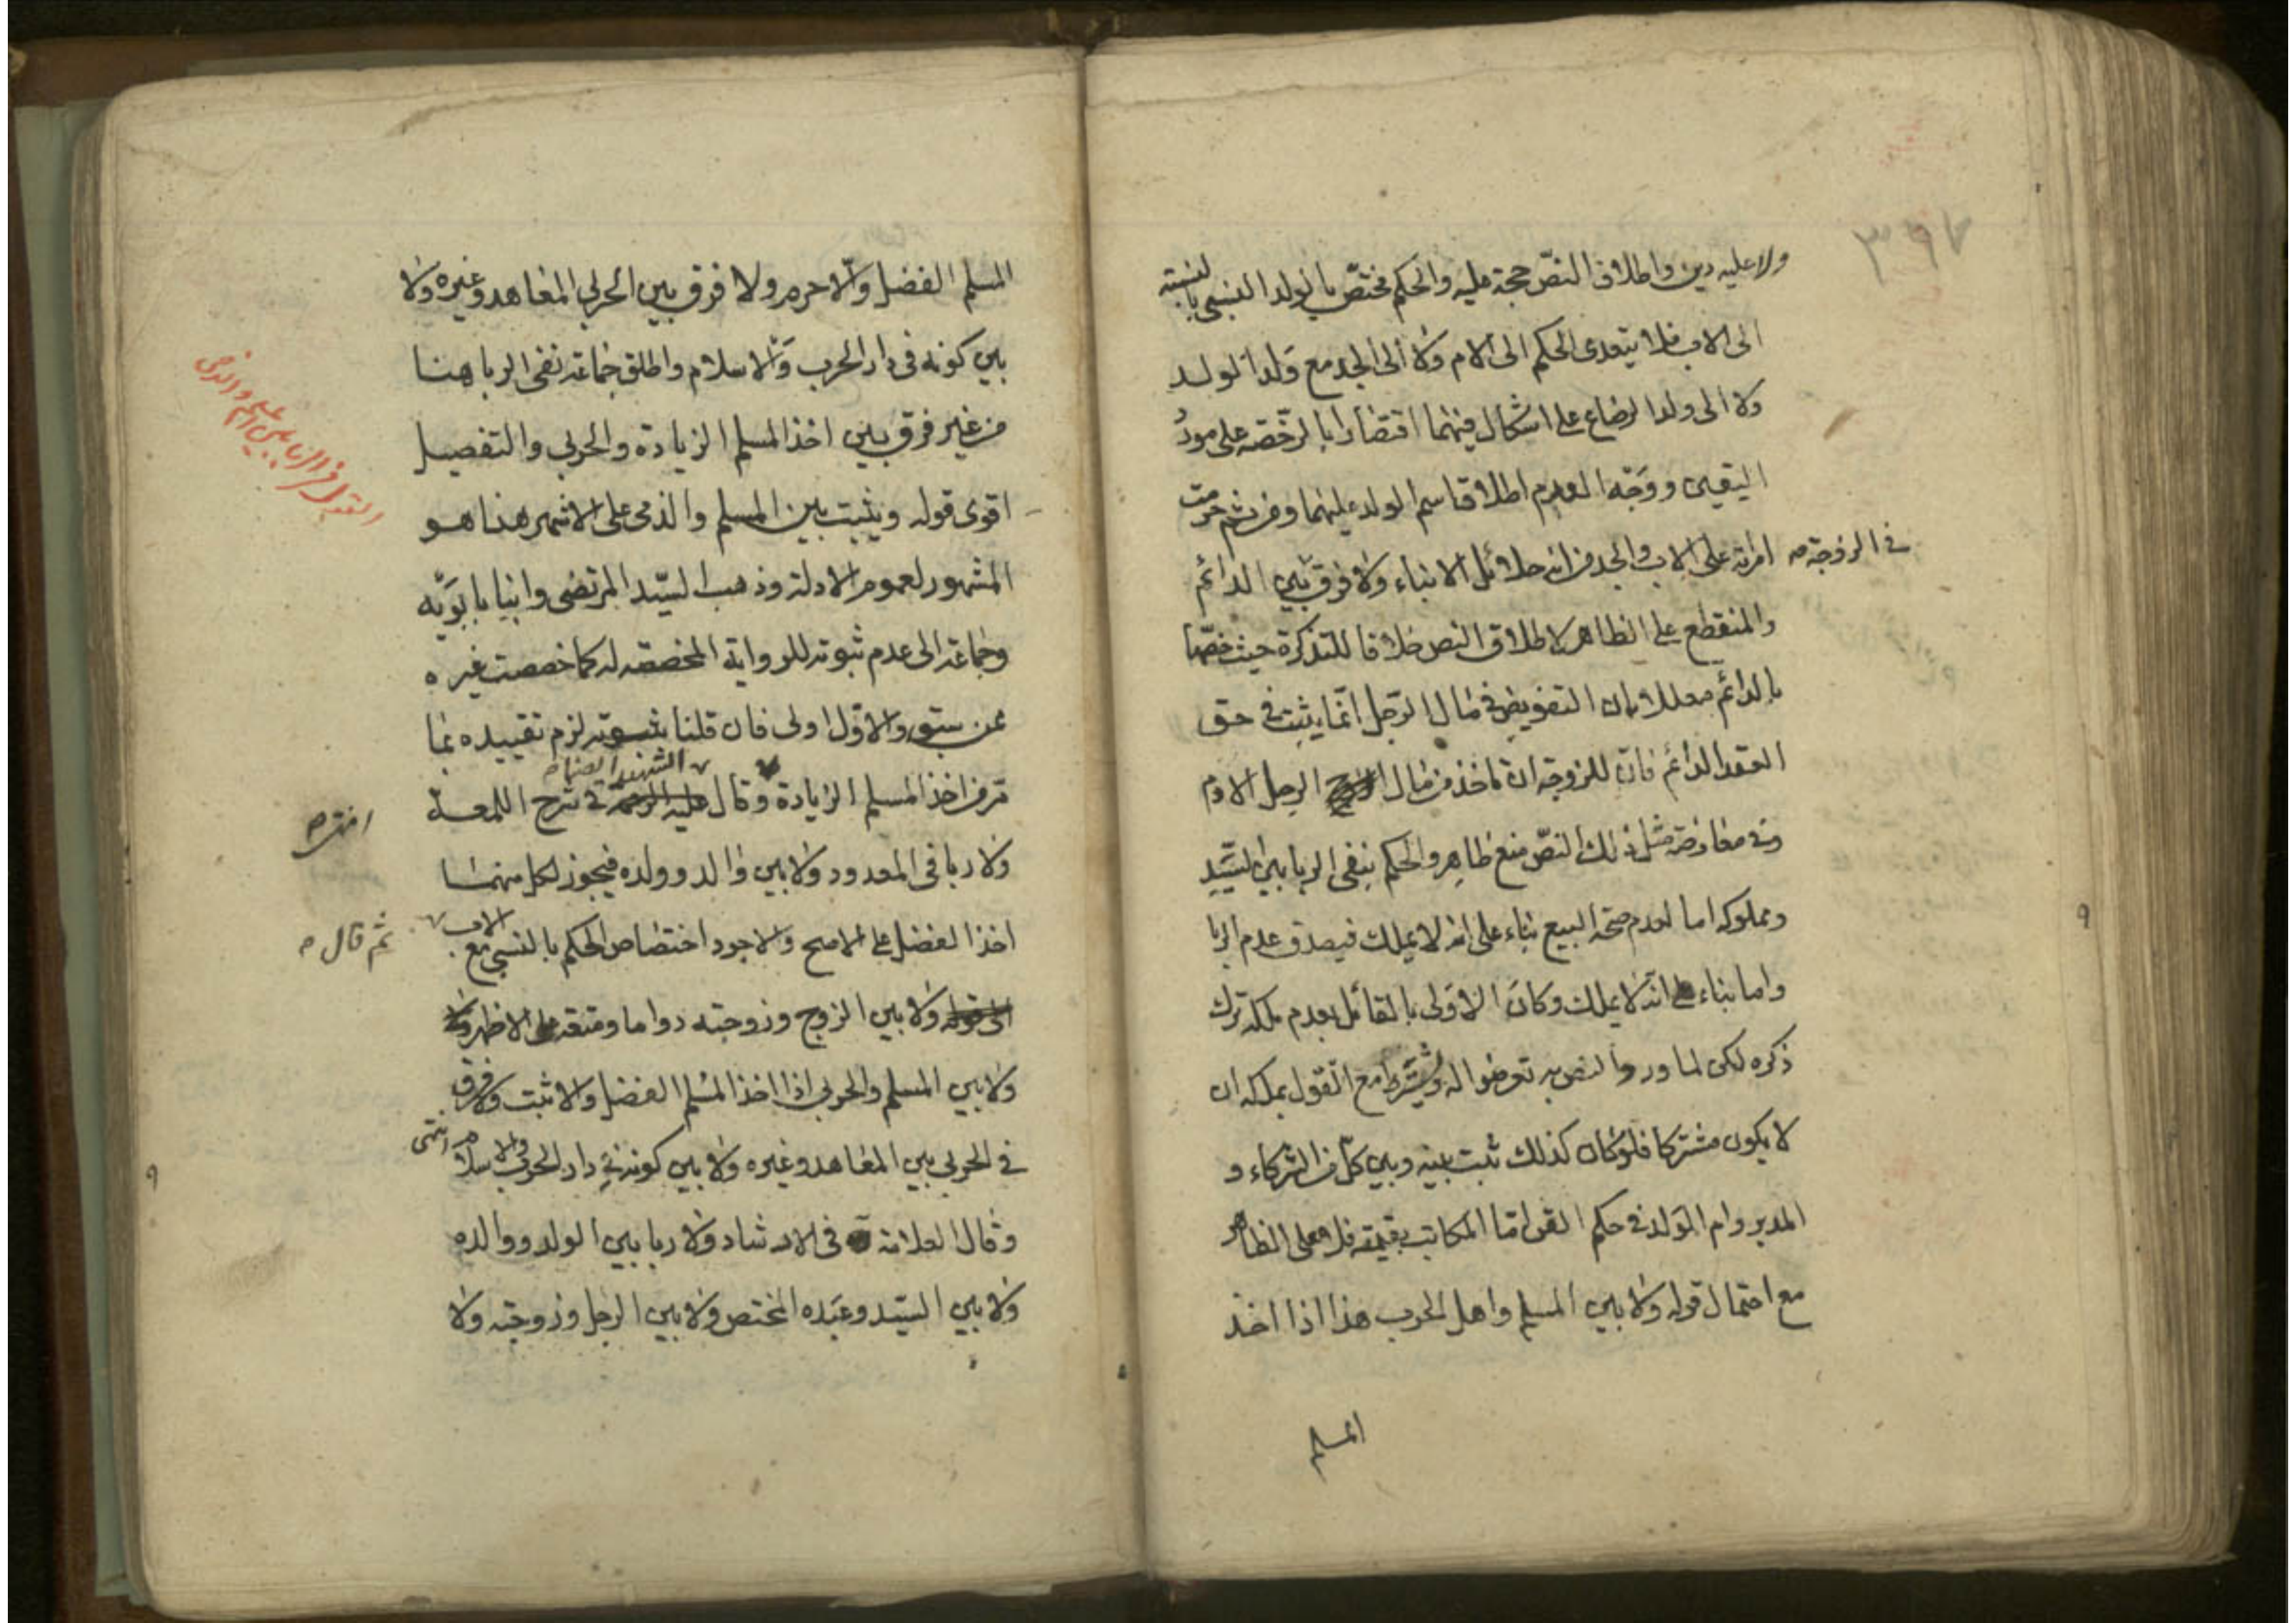 ٣٩٧
ولا عليه دين واطلاق النصّ حجة عليه والحكم مختصّ بالولد النسبي بالنسبة
الى الاب فلا يتعدى الحكم الى الام ولا الى الجد مع ولد الولد
ولا الى ولد الرضاع على اشكال فيهما اقتصارا بالرخصة على مورد
اليقين ووجه العدم اطلاق اسم الولد عليهما ومن ثم حرمت
امراته على الاب والجد من انه حلائل الابناء ولا فرق بين الدائم
في الزوجة صح
والمنقطع على الظاهر لاطلاق النص خلافا للتذكرة حيث خصّها
بالدائم معللا بان التفويض في مال الرّجل انّما يثبت في حق
العقد الدائم فان للزوجة ان تاخذ من مال الرجل الادم
وفي معارضة مثل ذلك النصّ منع ظاهر والحكم بنفي الربا بين السيّد
ومملوكه اما لعدم صحة البيع بناء على انه لا يملك فيصدق عدم الربا
واما بناء على انه لا يملك وكان الاولى بالقائل بعدم ملكه ترك
ذكره لكن لما ورد النص به تعرضوا له ويشترط مع القول بملكه ان
لا يكون مشتركا فلو كان كذلك ثبت بينه وبين كل من الشركاء و
المدبر وام الولد في حكم القن اما المكاتب بقسميه فلا على الظاهر
مع احتمال قوله ولا بين المسلم واهل الحرب هذا اذا اخذ
المسلم
المسلم الفضل والا حرم ولا فرق بين الحربي المعاهد وغيره ولا
بين كونه في دار الحرب والاسلام واطلق جماعة نفي الربا هنا
من غير فرق بين اخذ المسلم الزيادة والحربي والتفصيل
اقوى قوله ويثبت بين المسلم والذمى على الاشهر هذا هو
المشهور لعموم الادلة وذهب السيّد المرتضى وابنا بابويه
وجماعة الى عدم ثبوته للرواية المخصصة له كما خصصت غيره
ممن سبق والاوّل اولى فان قلنا بثبوته لزم تقييده بما
مرّ من اخذ المسلم الزيادة وقال الشهيد ايضا صح في شرح اللمعة
ولا ربا في المعدود ولا بين والد وولده فيجوز لكل منهما
اخذ الفضل على الاصح والاجود اختصاص الحكم بالنسبي مع الاب
ثم قال صح
ولا بين الزوج وزوجته دواما ومتعة على الاظهر
ولا بين المسلم والحربي اذا اخذ المسلم الفضل والا ثبت ولا فرق
في الحربي بين المعاهد وغيره ولا بين كونه في دار الحرب والاسلام انتهى
وقال العلامة في الارشاد ولا ربا بين الولد ووالده
ولا بين السيّد وعبده المختص ولا بين الرجل وزوجته ولا